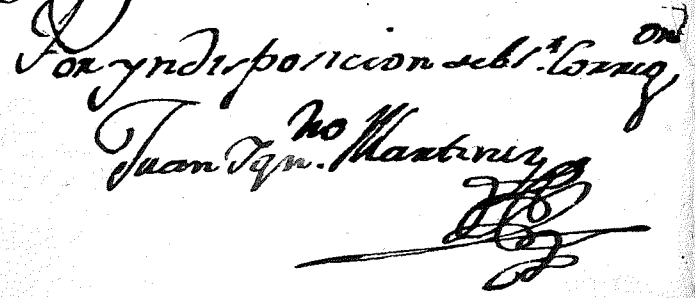 Por yndisposicion del S.r Correg.or
Juan Ygn.no Martinez